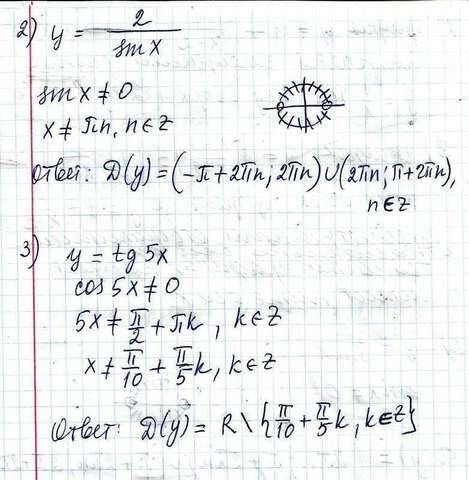 2) y = 2 / sin x
sin x ≠ 0
x ≠ πn, n ∈ Z
Ответ: D(y) = (-π + 2πn; 2πn) ∪ (2πn; π + 2πn),
n ∈ Z
3) y = tg 5x
cos 5x ≠ 0
5x ≠ π/2 + πk, k ∈ Z
x ≠ π/10 + π/5 k, k ∈ Z
Ответ: D(y) = R \ {π/10 + π/5 k, k ∈ Z}